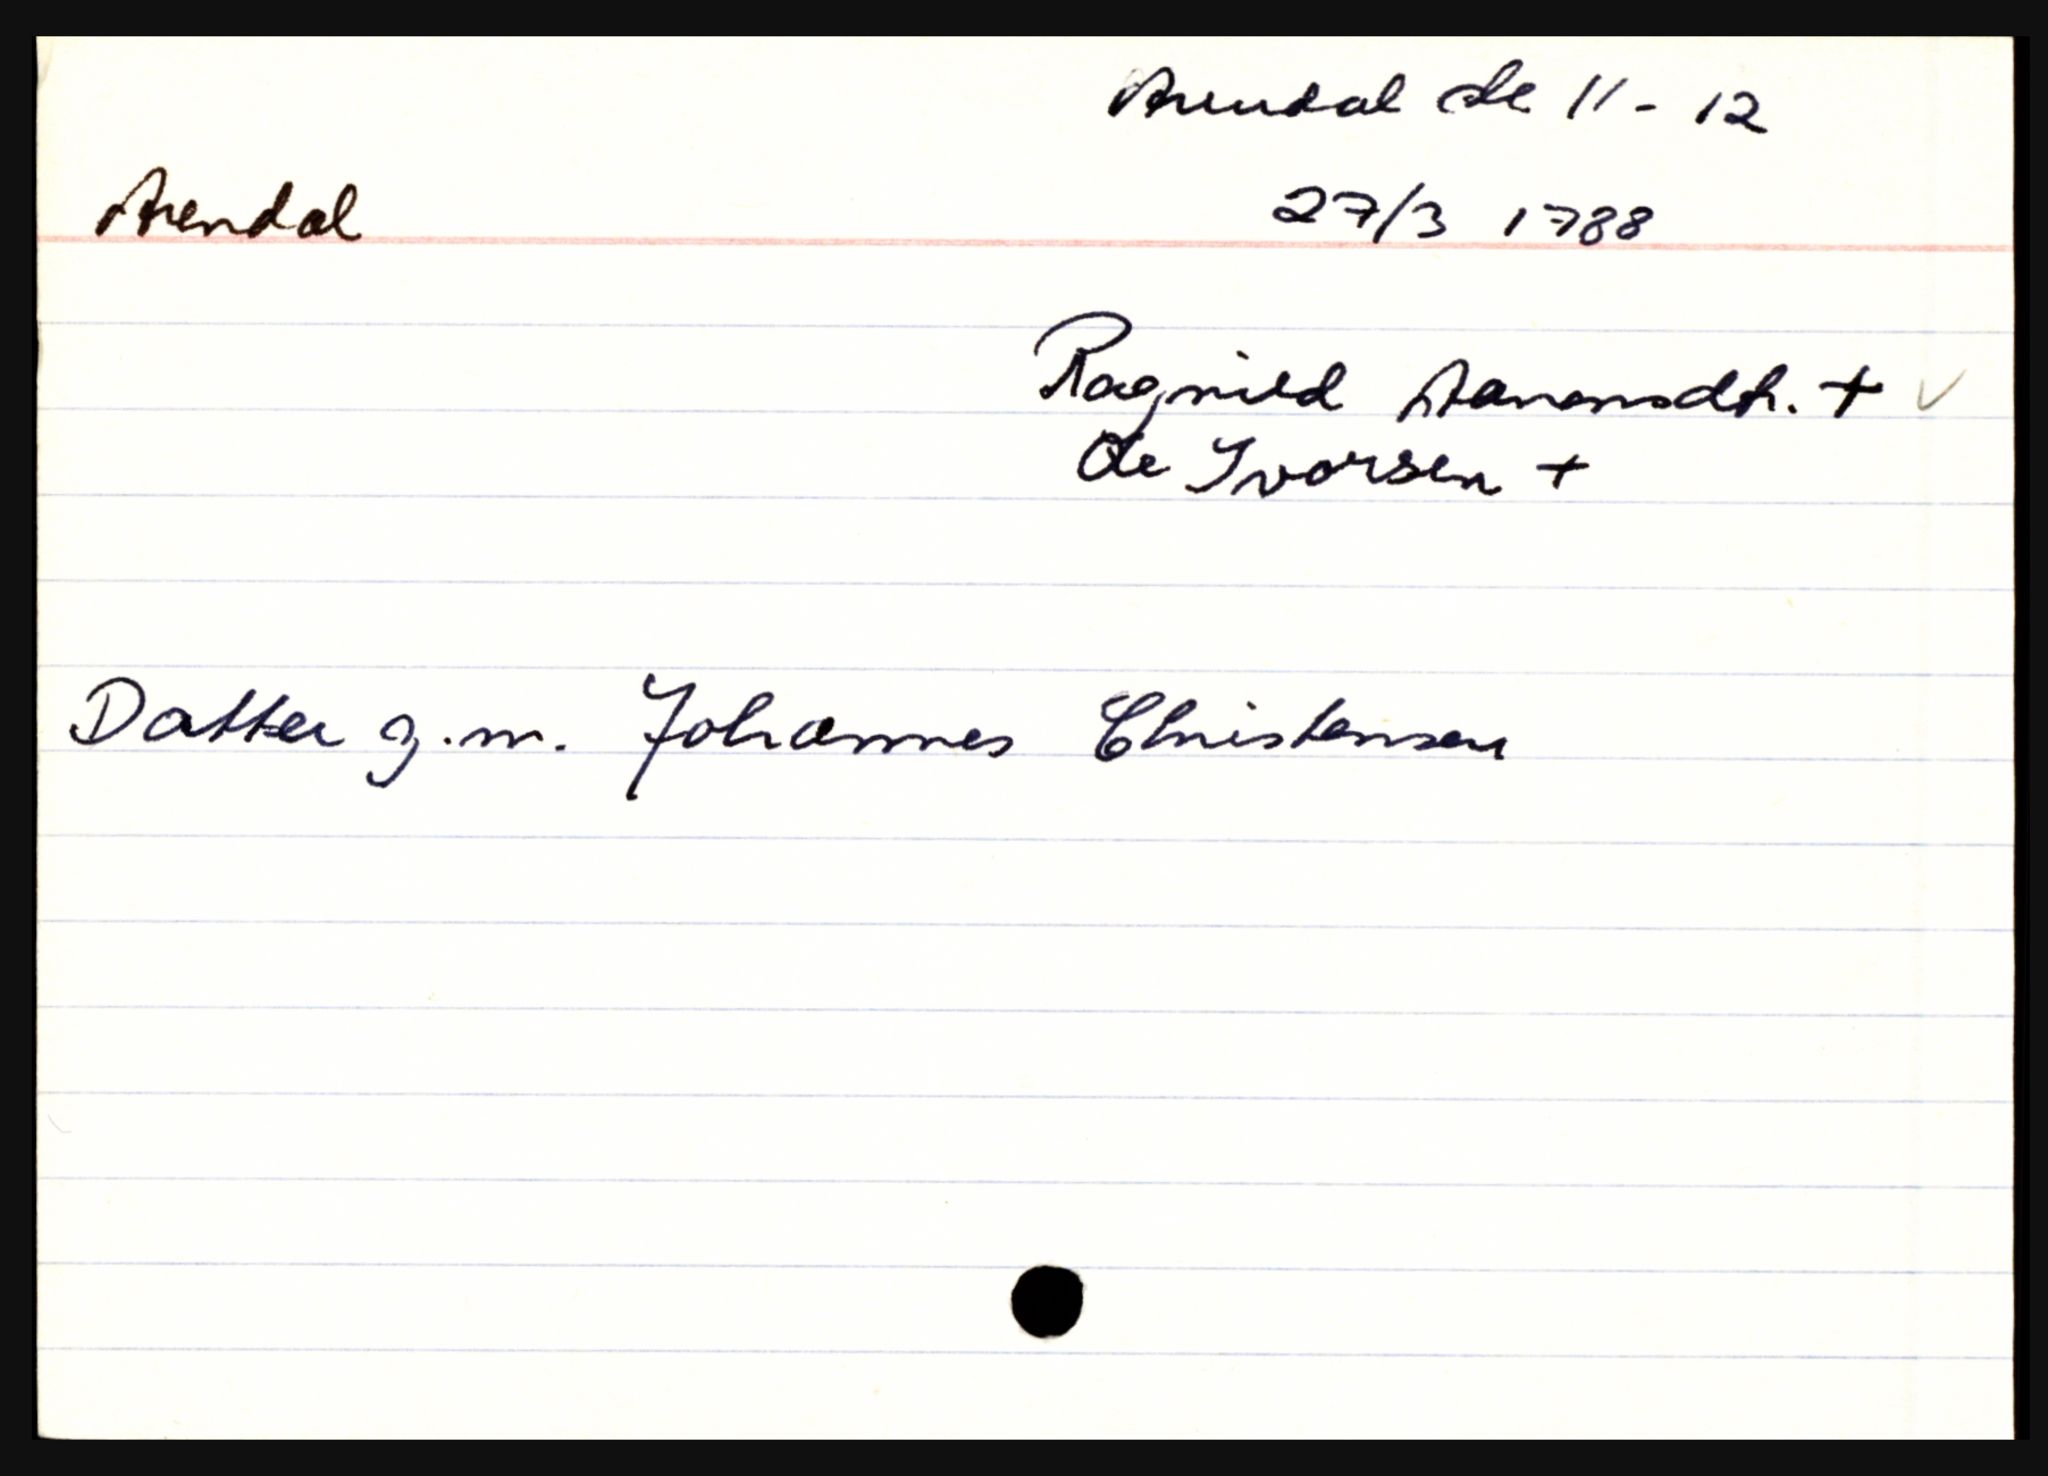 Arendal de 11 - 12
Arendal 27/3 1788
Ragnild Aanensdtr. + ✓
Ole Ivarsen +
Datter g.m. Johannes Christensen